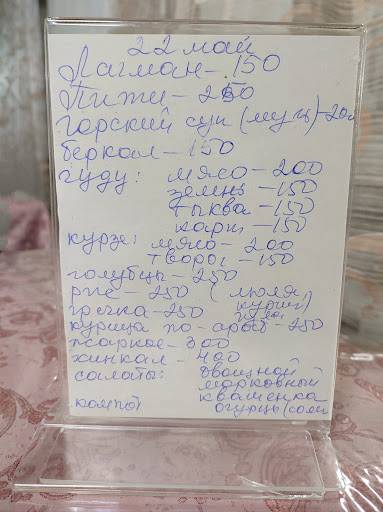 22 май
Лагман - 150
Пити - 250
Горский суп (мущ) - 200
беркал - 150
гуду: мясо - 200
зелень - 150
тыква - 150
карт - 150
курзе: мясо - 200
творог - 150
голубцы - 250
рис - 250 (люля
гречка - 250 курица)
курица по-араб - 250
жаркое - 300
хинкал - 400
салаты: овощной
морковный
квашенка
компот огурцы (соли